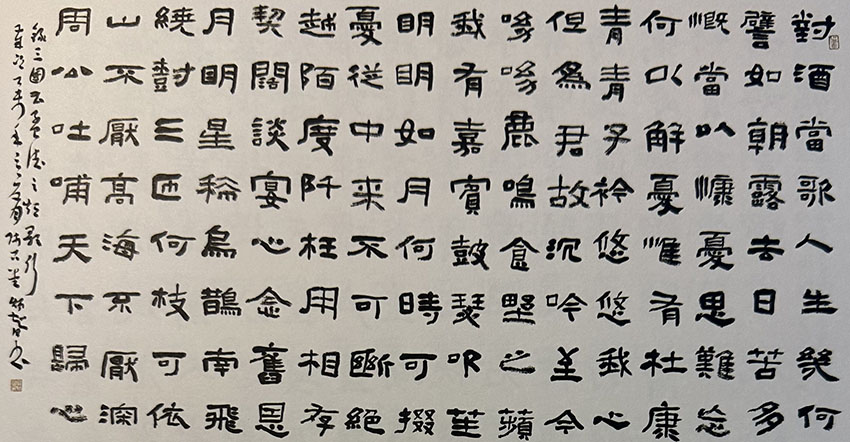 對酒當歌人生幾何
譬如朝露去日苦多
慨當以慷憂思難忘
何以解憂惟有杜康
青青子衿悠悠我心
但爲君故沉吟至今
呦呦鹿鳴食野之蘋
我有嘉賓鼓瑟吹笙
明明如月何時可掇
憂從中来不可斷絕
越陌度阡枉用相存
契闊談宴心念舊恩
月明星稀烏鵲南飛
繞樹三匝何枝可依
山不厭高海不厭深
周公吐哺天下歸心
錄三國曹孟德之短歌行